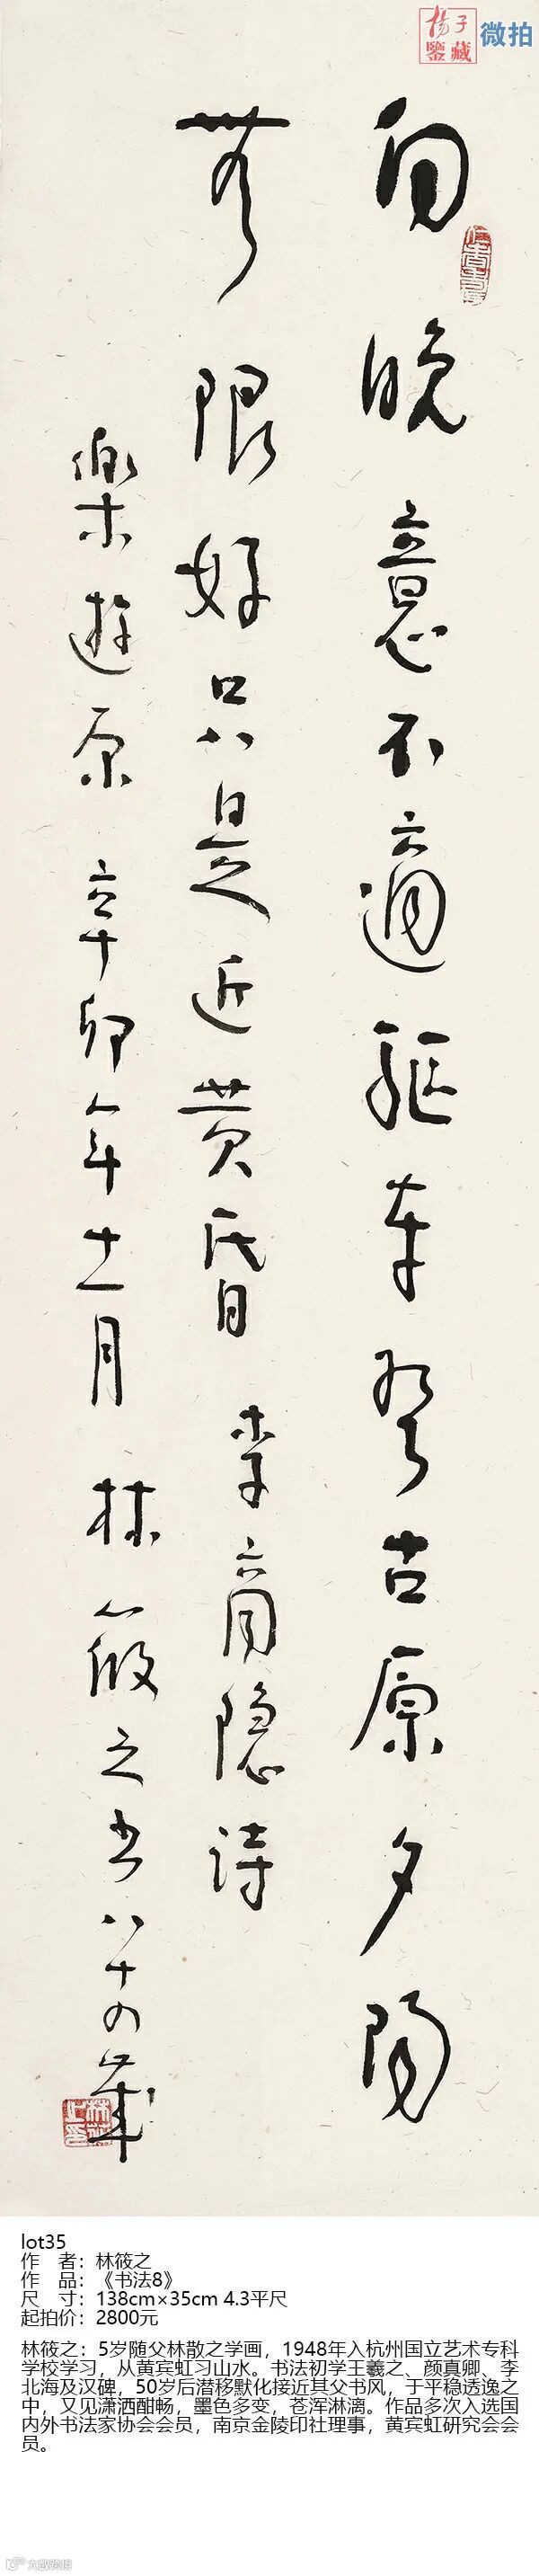 楊子
鑒藏
微拍
向晚意不適驅車登古原夕陽
無限好只是近黄昏 李商隐詩
樂遊原 辛卯年十一月 林筱之书八十四歲
lot35
作 者：林筱之
作 品：《书法8》
尺 寸：138cm×35cm 4.3平尺
起拍价：2800元
林筱之：5岁随父林散之学画，1948年入杭州国立艺术专科
学校学习，从黄宾虹习山水。书法初学王羲之、颜真卿、李
北海及汉碑，50岁后潜移默化接近其父书风，于平稳透逸之
中，又见潇洒酣畅，墨色多变，苍浑淋漓。作品多次入选国
内外书法家协会会员，南京金陵印社理事，黄宾虹研究会会
员。